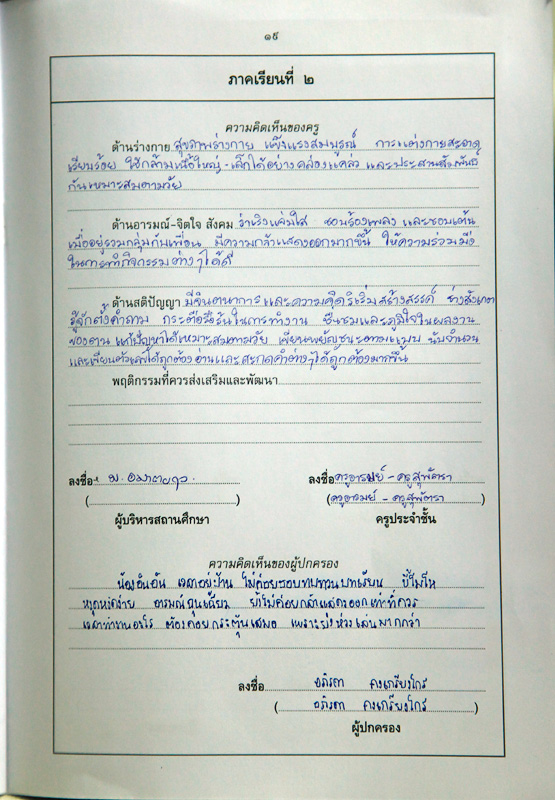 ๑๙
ภาคเรียนที่ ๒
ความคิดเห็นของครู
ด้านร่างกาย สุขภาพร่างกาย แข็งแรงสมบูรณ์ การแต่งกายสะอาด
เรียบร้อย ใช้กล้ามเนื้อใหญ่-เล็กได้อย่างคล่องแคล่ว และประสานสัมพันธ์
กันเหมาะสมตามวัย
ด้านอารมณ์-จิตใจ สังคม ร่าเริงแจ่มใส ชอบร้องเพลง และชอบเต้น
เมื่ออยู่รวมกลุ่มกับเพื่อน มีความกล้าแสดงออกมากขึ้น ให้ความร่วมมือ
ในการทำกิจกรรมต่างๆได้ดี
ด้านสติปัญญา มีจินตนาการ และความคิดริเริ่มสร้างสรรค์ ช่างสังเกต
รู้จักตั้งคำถาม กระตือรือร้นในการทำงาน ชื่นชมและภูมิใจในผลงาน
ของตน แก้ปัญหาได้เหมาะสมตามวัย เขียนพยัญชนะตามแบบ นับจำนวน
และเขียนตัวเลขได้ถูกต้อง อ่านและสะกดคำต่างๆได้ถูกต้องมากขึ้น
พฤติกรรมที่ควรส่งเสริมและพัฒนา
ลงชื่อ
ลงชื่อ ครูอารมย์ - ครูสุพัตรา
( )
(ครูอารมย์ - ครูสุพัตรา)
ผู้บริหารสถานศึกษา
ครูประจำชั้น
ความคิดเห็นของผู้ปกครอง
น้องอันอัน เวลาอยู่บ้าน ไม่ค่อยชอบทบทวนบทเรียน ขี้โมโห
หงุดหงิดง่าย อารมณ์ฉุนเฉียว ยังไม่ค่อยกล้าแสดงออกเท่าที่ควร
เวลาทำงานอะไร ต้องคอยกระตุ้นเสมอ เพราะยังห่วงเล่นมากกว่า
ลงชื่อ อภิรดา คงเกรียงไกร
( อภิรดา คงเกรียงไกร )
ผู้ปกครอง